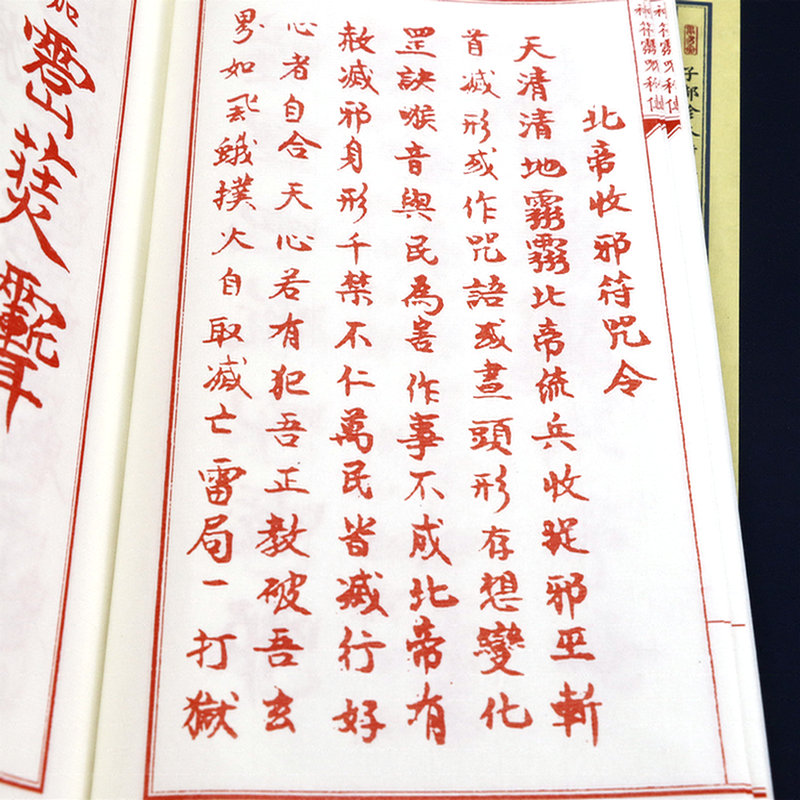 北帝收邪符咒令
天清清地霧霧北帝統兵收捉邪巫斬
首滅形或作咒語或畫頭形存想變化
罡訣喉音與民為害作事不成北帝有
赦滅邪身形千禁不仁萬民皆滅行好
心者自合天心若有犯吾正教破吾玄
界如飛蛾撲火自取滅亡雷局一打獄